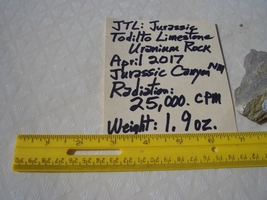 JTL: Jurassic
Todilto Limestone
Uranium Rock
April 2017
Jurassic Canyon NM
Radiation:
25,000. CPM
Weight: 1.9 oz.